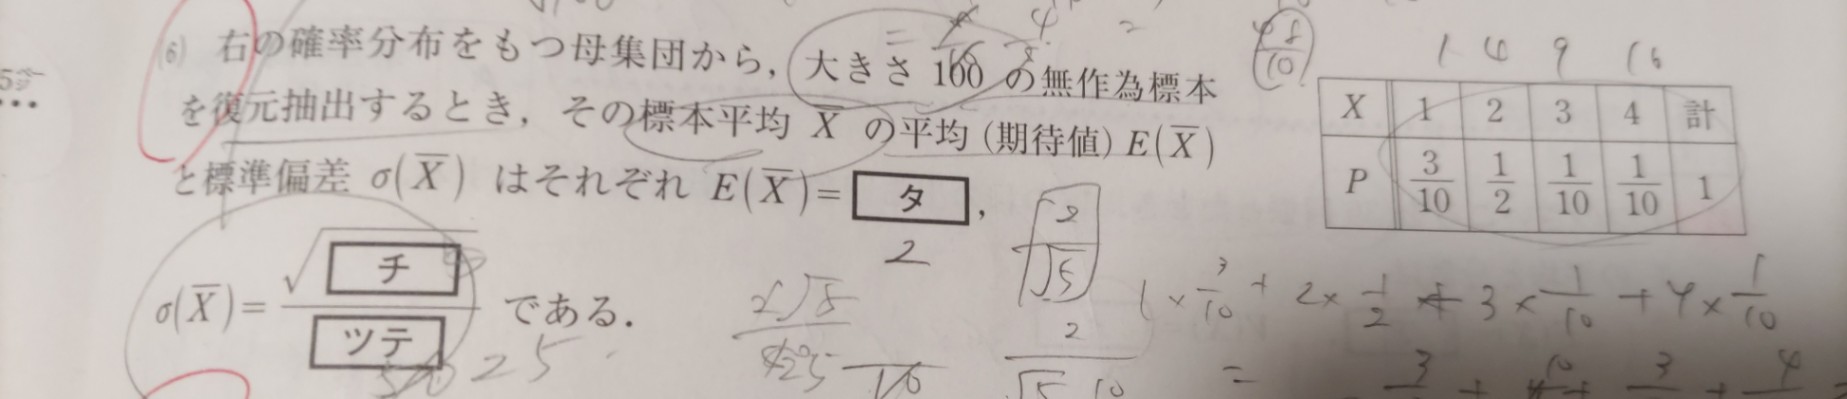 (6) 右の確率分布をもつ母集団から，大きさ 100 の無作為標本
を復元抽出するとき，その標本平均 X̄ の平均（期待値）E(X̄)
と標準偏差 σ(X̄) はそれぞれ E(X̄)= タ ，
2
σ(X̄)= √チ / ツテ である．
5
25
1 4 9 16
X 1 2 3 4 計
P 3/10 1/2 1/10 1/10 1
48/10
2/√5
2√5
2
√5 10
1 × 3/10 + 2 × 1/2 + 3 × 1/10 + 4 × 1/10
= 3 + 10 + 3 + 4